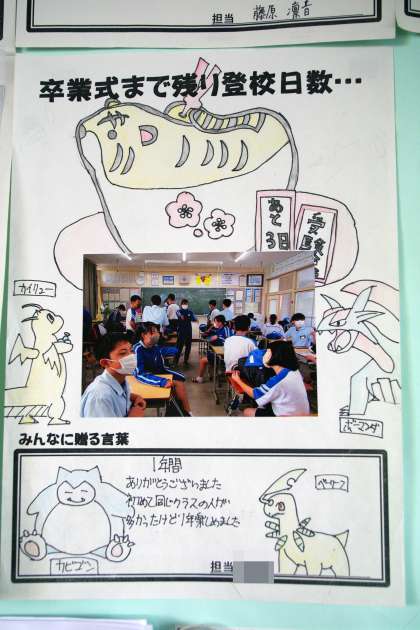 担当 藤原 凛音
卒業式まで残り登校日数…
あと
3日
受験
カイリュー
ボーマンダ
みんなに贈る言葉
1年間
ありがとうございました
初めて同じクラスの人が
多かったけど1年楽しめました
カビゴン
ベイリーフ
担当